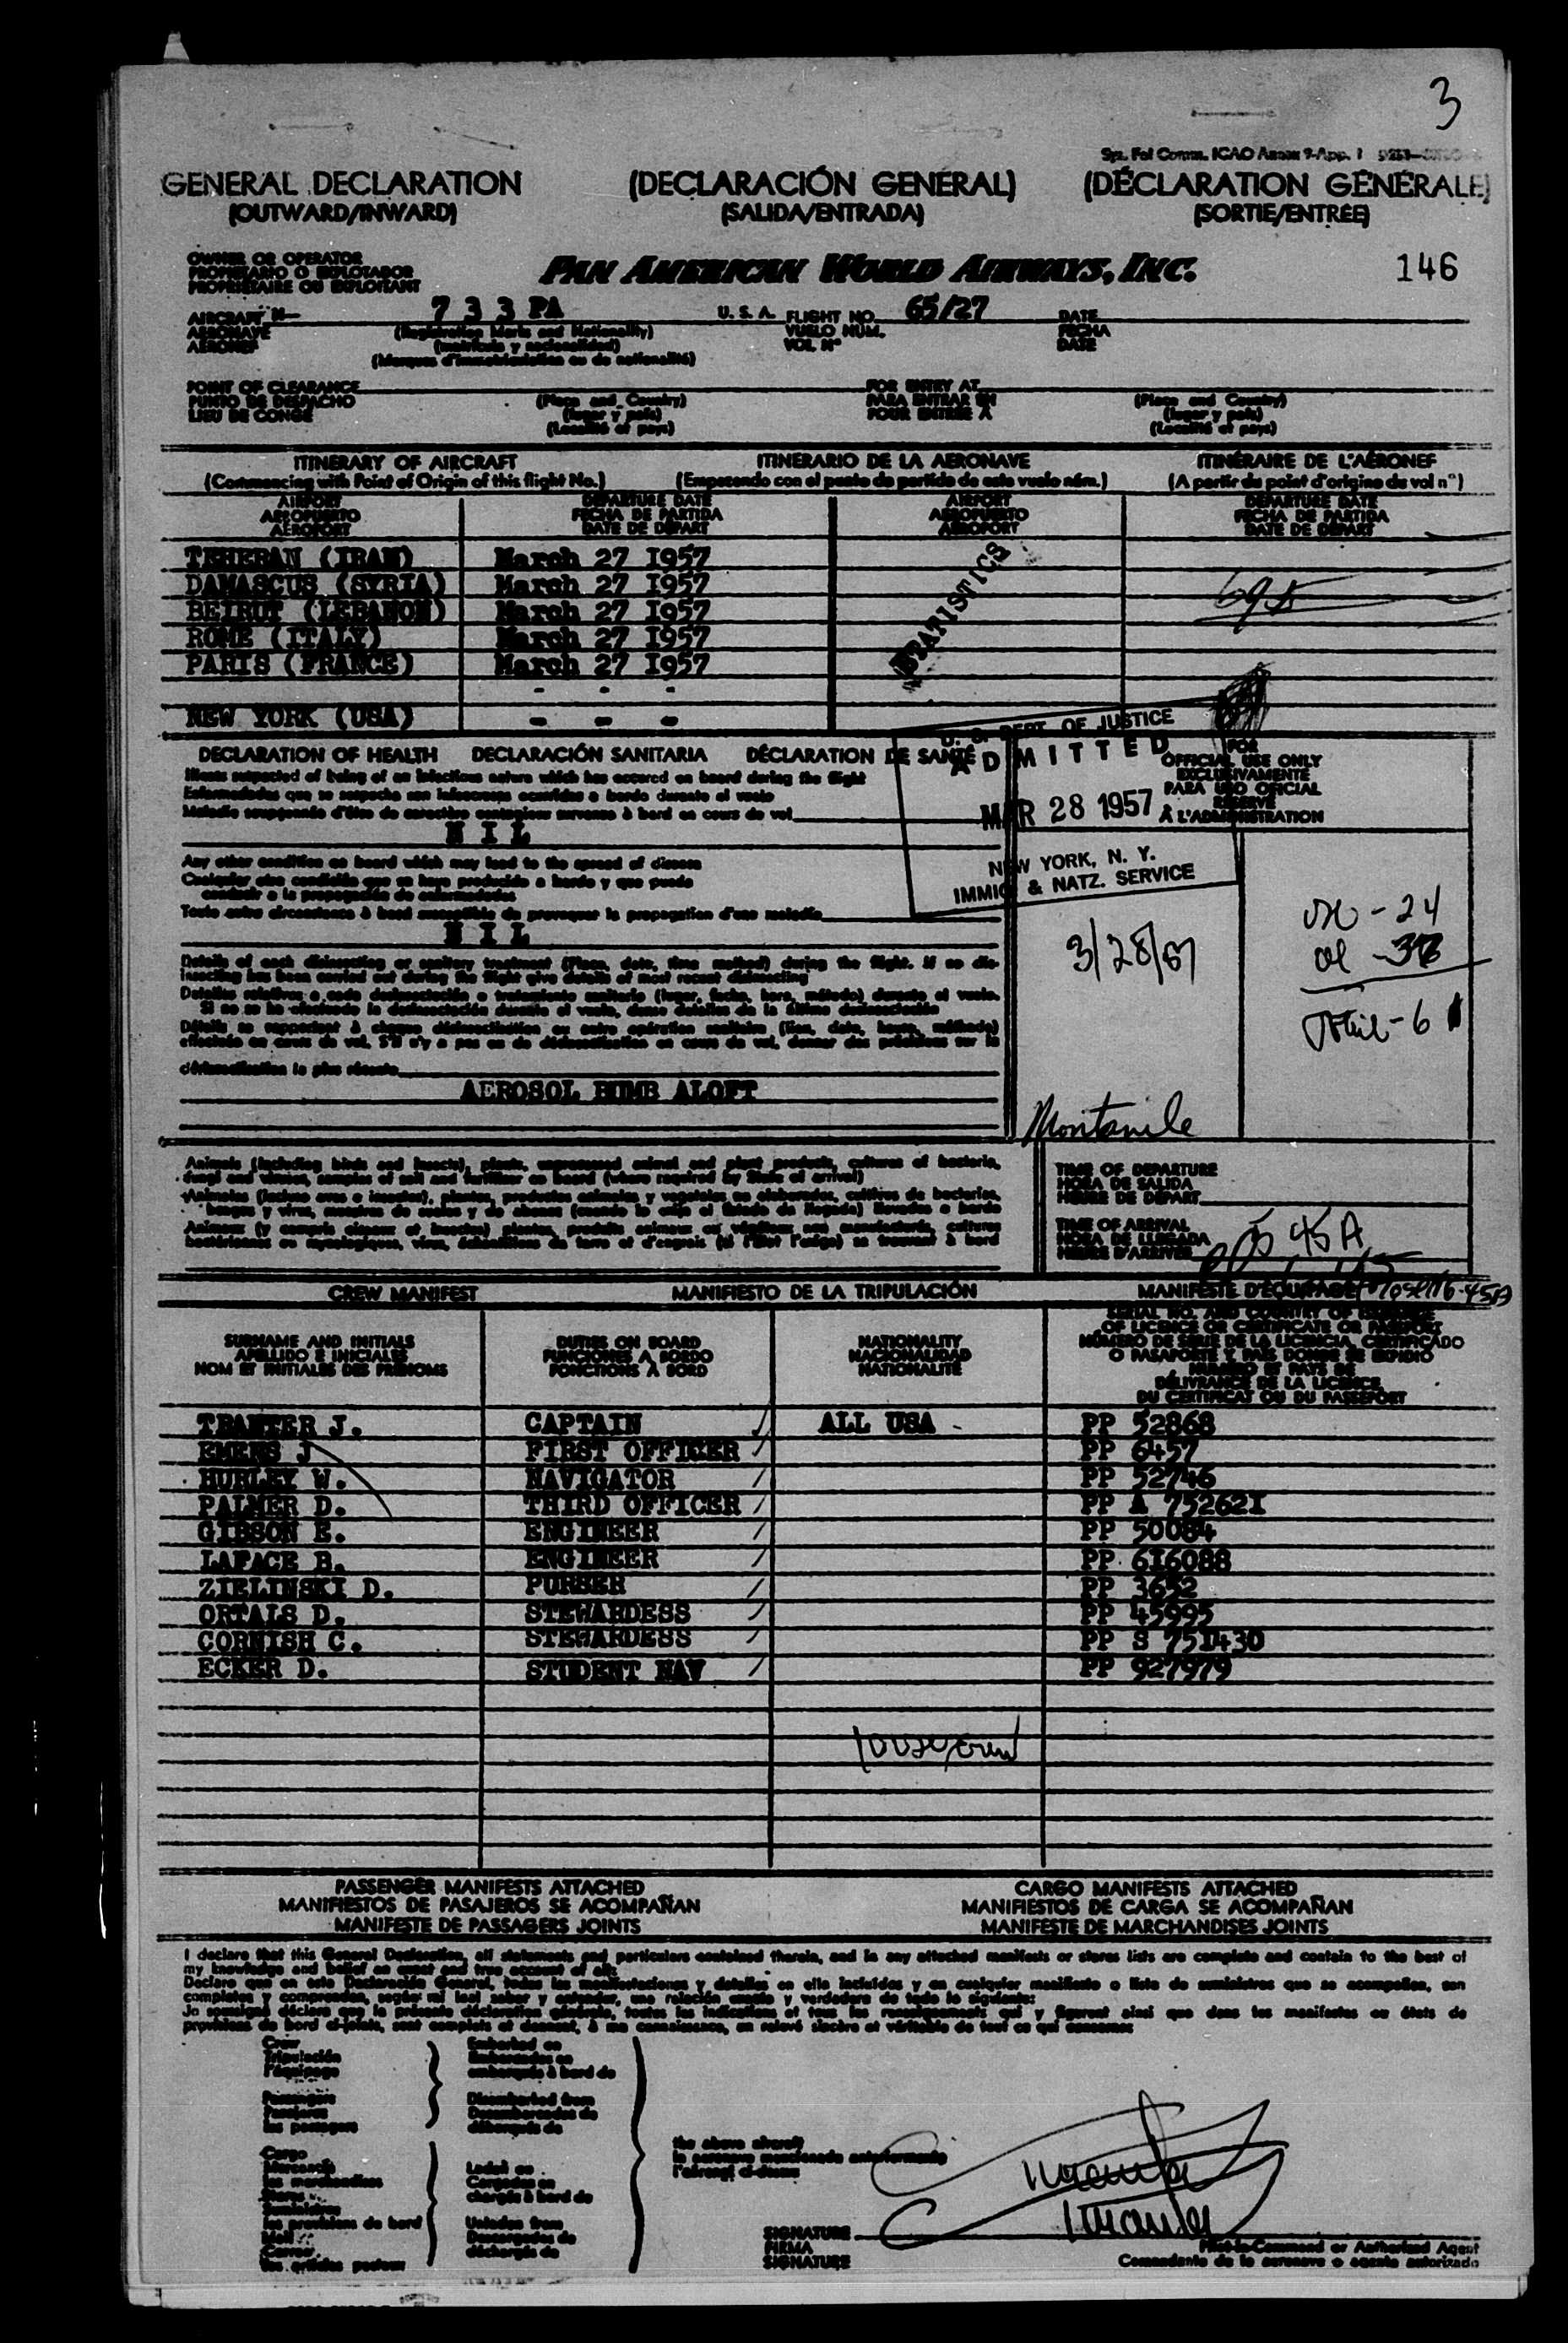 3
Spz. Fol Comm. ICAO Annex 9-App. 1
GENERAL DECLARATION (DECLARACIÓN GENERAL) (DÉCLARATION GÉNÉRALE)
(OUTWARD/INWARD) (SALIDA/ENTRADA) (SORTIE/ENTRÉE)
OWNER OR OPERATOR
PROPIETARIO O EXPLOTADOR
PROPRIÉTAIRE OU EXPLOITANT
PAN AMERICAN WORLD AIRWAYS, INC. 146
AIRCRAFT N— 7 3 3 PA U. S. A. FLIGHT NO. 65/27 DATE
AERONAVE (Registration Marks and Nationality) VUELO NÚM. FECHA
AÉRONEF (matrícula y nacionalidad) VOL Nº DATE
(Marques d'immatriculation ou de nationalité)
POINT OF CLEARANCE FOR ENTRY AT
PUNTO DE DESPACHO (Place and Country) PARA ENTRAR EN (Place and Country)
LIEU DE CONGÉ (lugar y país) POUR ENTRÉE À (lugar y país)
(Localité et pays) (Localité et pays)
ITINERARY OF AIRCRAFT ITINERARIO DE LA AERONAVE ITINÉRAIRE DE L'AÉRONEF
(Commencing with Point of Origin of this flight No.) (Empezando con el punto de partida de este vuelo núm.) (A partir du point d'origine du vol nº)
AIRPORT DEPARTURE DATE AIRPORT DEPARTURE DATE
AEROPUERTO FECHA DE PARTIDA AEROPUERTO FECHA DE PARTIDA
AÉROPORT DATE DE DÉPART AÉROPORT DATE DE DÉPART
TEHERAN (IRAN) March 27 1957
DAMASCUS (SYRIA) March 27 1957
BEIRUT (LEBANON) March 27 1957
ROME (ITALY) March 27 1957
PARIS (FRANCE) March 27 1957
- - -
NEW YORK (USA) - - -
STATISTICS
U. S. DEPT. OF JUSTICE
ADMITTED
MAR 28 1957
NEW YORK, N. Y.
IMMIG. & NATZ. SERVICE
DECLARATION OF HEALTH DECLARACIÓN SANITARIA DÉCLARATION DE SANTÉ
FOR
OFFICIAL USE ONLY
EXCLUSIVAMENTE
PARA USO OFICIAL
RÉSERVÉ
À L'ADMINISTRATION
Illness suspected of being of an infectious nature which has occured on board during the flight
Enfermedades que se sospecha son infecciosas ocurridas a bordo durante el vuelo
Maladie soupçonnée d'être de caractère contagieux survenue à bord en cours de vol
N I L
Any other condition on board which may lead to the spread of disease
Cualquier otra condición que se haya producido a bordo y que pueda
contribuir a la propagación de enfermedades
Toute autre circonstance à bord susceptible de provoquer la propagation d'une maladie
N I L
3/28/57
- 24
Details of each disinsecting or sanitary treatment (Place, date, time method) during the flight. If no dis-
insecting has been carried out during the flight give details of most recent disinsecting
Detalles relativos a cada desinsectación o tratamiento sanitario (lugar, fecha, hora, método) durante el vuelo.
Si no se ha efectuado la desinsectación durante el vuelo, dense detalles de la última desinsectación
Détails se rapportant à chaque désinsectisation ou autre opération sanitaire (lieu, date, heure, méthode)
effectuée en cours de vol. S'il n'y a pas eu de désinsectisation en cours de vol, donner des précisions sur la
désinsectisation la plus récente
AEROSOL BUMB ALOFT
Montanile
Animals (including birds and insects), plants, unprocessed animal and plant products, cultures of bacteria,
fungi and viruses, samples of soil and fertilizer on board (where required by State of arrival)
Animales (incluso aves e insectos), plantas, productos animales y vegetales no elaborados, cultivos de bacterias,
hongos y virus, muestras de suelos y de abonos (cuando lo exija el Estado de llegada) llevados a bordo
TIME OF DEPARTURE
HORA DE SALIDA
HEURE DE DÉPART
TIME OF ARRIVAL
HORA DE LLEGADA
HEURE D'ARRIVÉE
45 A
CREW MANIFEST MANIFIESTO DE LA TRIPULACIÓN MANIFESTE D'ÉQUIPAGE
SURNAME AND INITIALS DUTIES ON BOARD NATIONALITY
APELLIDO E INICIALES FUNCIONES A BORDO NACIONALIDAD
NOM ET INITIALES DES PRÉNOMS FONCTIONS À BORD NATIONALITÉ
SERIAL NO. AND COUNTRY OF ISSUANCE
OF LICENCE OR CERTIFICATE OR PASSPORT
NÚMERO DE SERIE DE LA LICENCIA, CERTIFICADO
O PASAPORTE Y PAÍS DONDE SE EXPIDIÓ
NUMÉRO ET PAYS DE
DÉLIVRANCE DE LA LICENCE
DU CERTIFICAT OU DU PASSEPORT
TRANTER J. CAPTAIN ALL USA - PP 52868
EMERS J FIRST OFFICER PP 6457
HURLEY W. NAVIGATOR PP 52746
PALMER D. THIRD OFFICER PP A 752621
GIBSON E. ENGINEER PP 50084
LAFACE B. ENGINEER PP 616088
ZIELINSKI D. PURSER PP 3652
ORTALS D. STEWARDESS PP 45995
CORNISH C. STEWARDESS PP S 751430
ECKER D. STUDENT NAV PP 927979
PASSENGER MANIFESTS ATTACHED CARGO MANIFESTS ATTACHED
MANIFIESTOS DE PASAJEROS SE ACOMPAÑAN MANIFIESTOS DE CARGA SE ACOMPAÑAN
MANIFESTE DE PASSAGERS JOINTS MANIFESTE DE MARCHANDISES JOINTS
I declare that this General Declaration, all statements and particulars contained therein, and in any attached manifests or stores lists are complete and contain to the best of
my knowledge and belief an exact and true account of all:
Declaro que en esta Declaración General, todas las manifestaciones y detalles en ella incluidos y en cualquier manifiesto o lista de suministros que se acompañen, son
completos y comprenden, según mi leal saber y entender, una relación exacta y verdadera de todo lo siguiente:
Je soussigné déclare que la présente déclaration générale, toutes les indications et tous les renseignements qui y figurent ainsi que dans les manifestes ou états de
provisions de bord ci-joints, sont complets et donnent, à ma connaissance, un relevé sincère et véritable de tout ce qui concerne:
Crew Embarked on
Tripulación Embarcados en
l'équipage embarqués à bord de
Passengers Disembarked from
Pasajeros Desembarcados de
les passagers débarqués de
the above aircraft
la aeronave mencionada anteriormente
l'aéronef ci-dessus
Cargo
Mercancía Laded on
les marchandises Cargados en
Stores chargés à bord de
Suministros
les provisions de bord Unladen from
Mail Descargados de
Correo déchargés de
les articles postaux
SIGNATURE
FIRMA
SIGNATURE
Pilot-in-Command or Authorized Agent
Comandante de la aeronave o agente autorizado